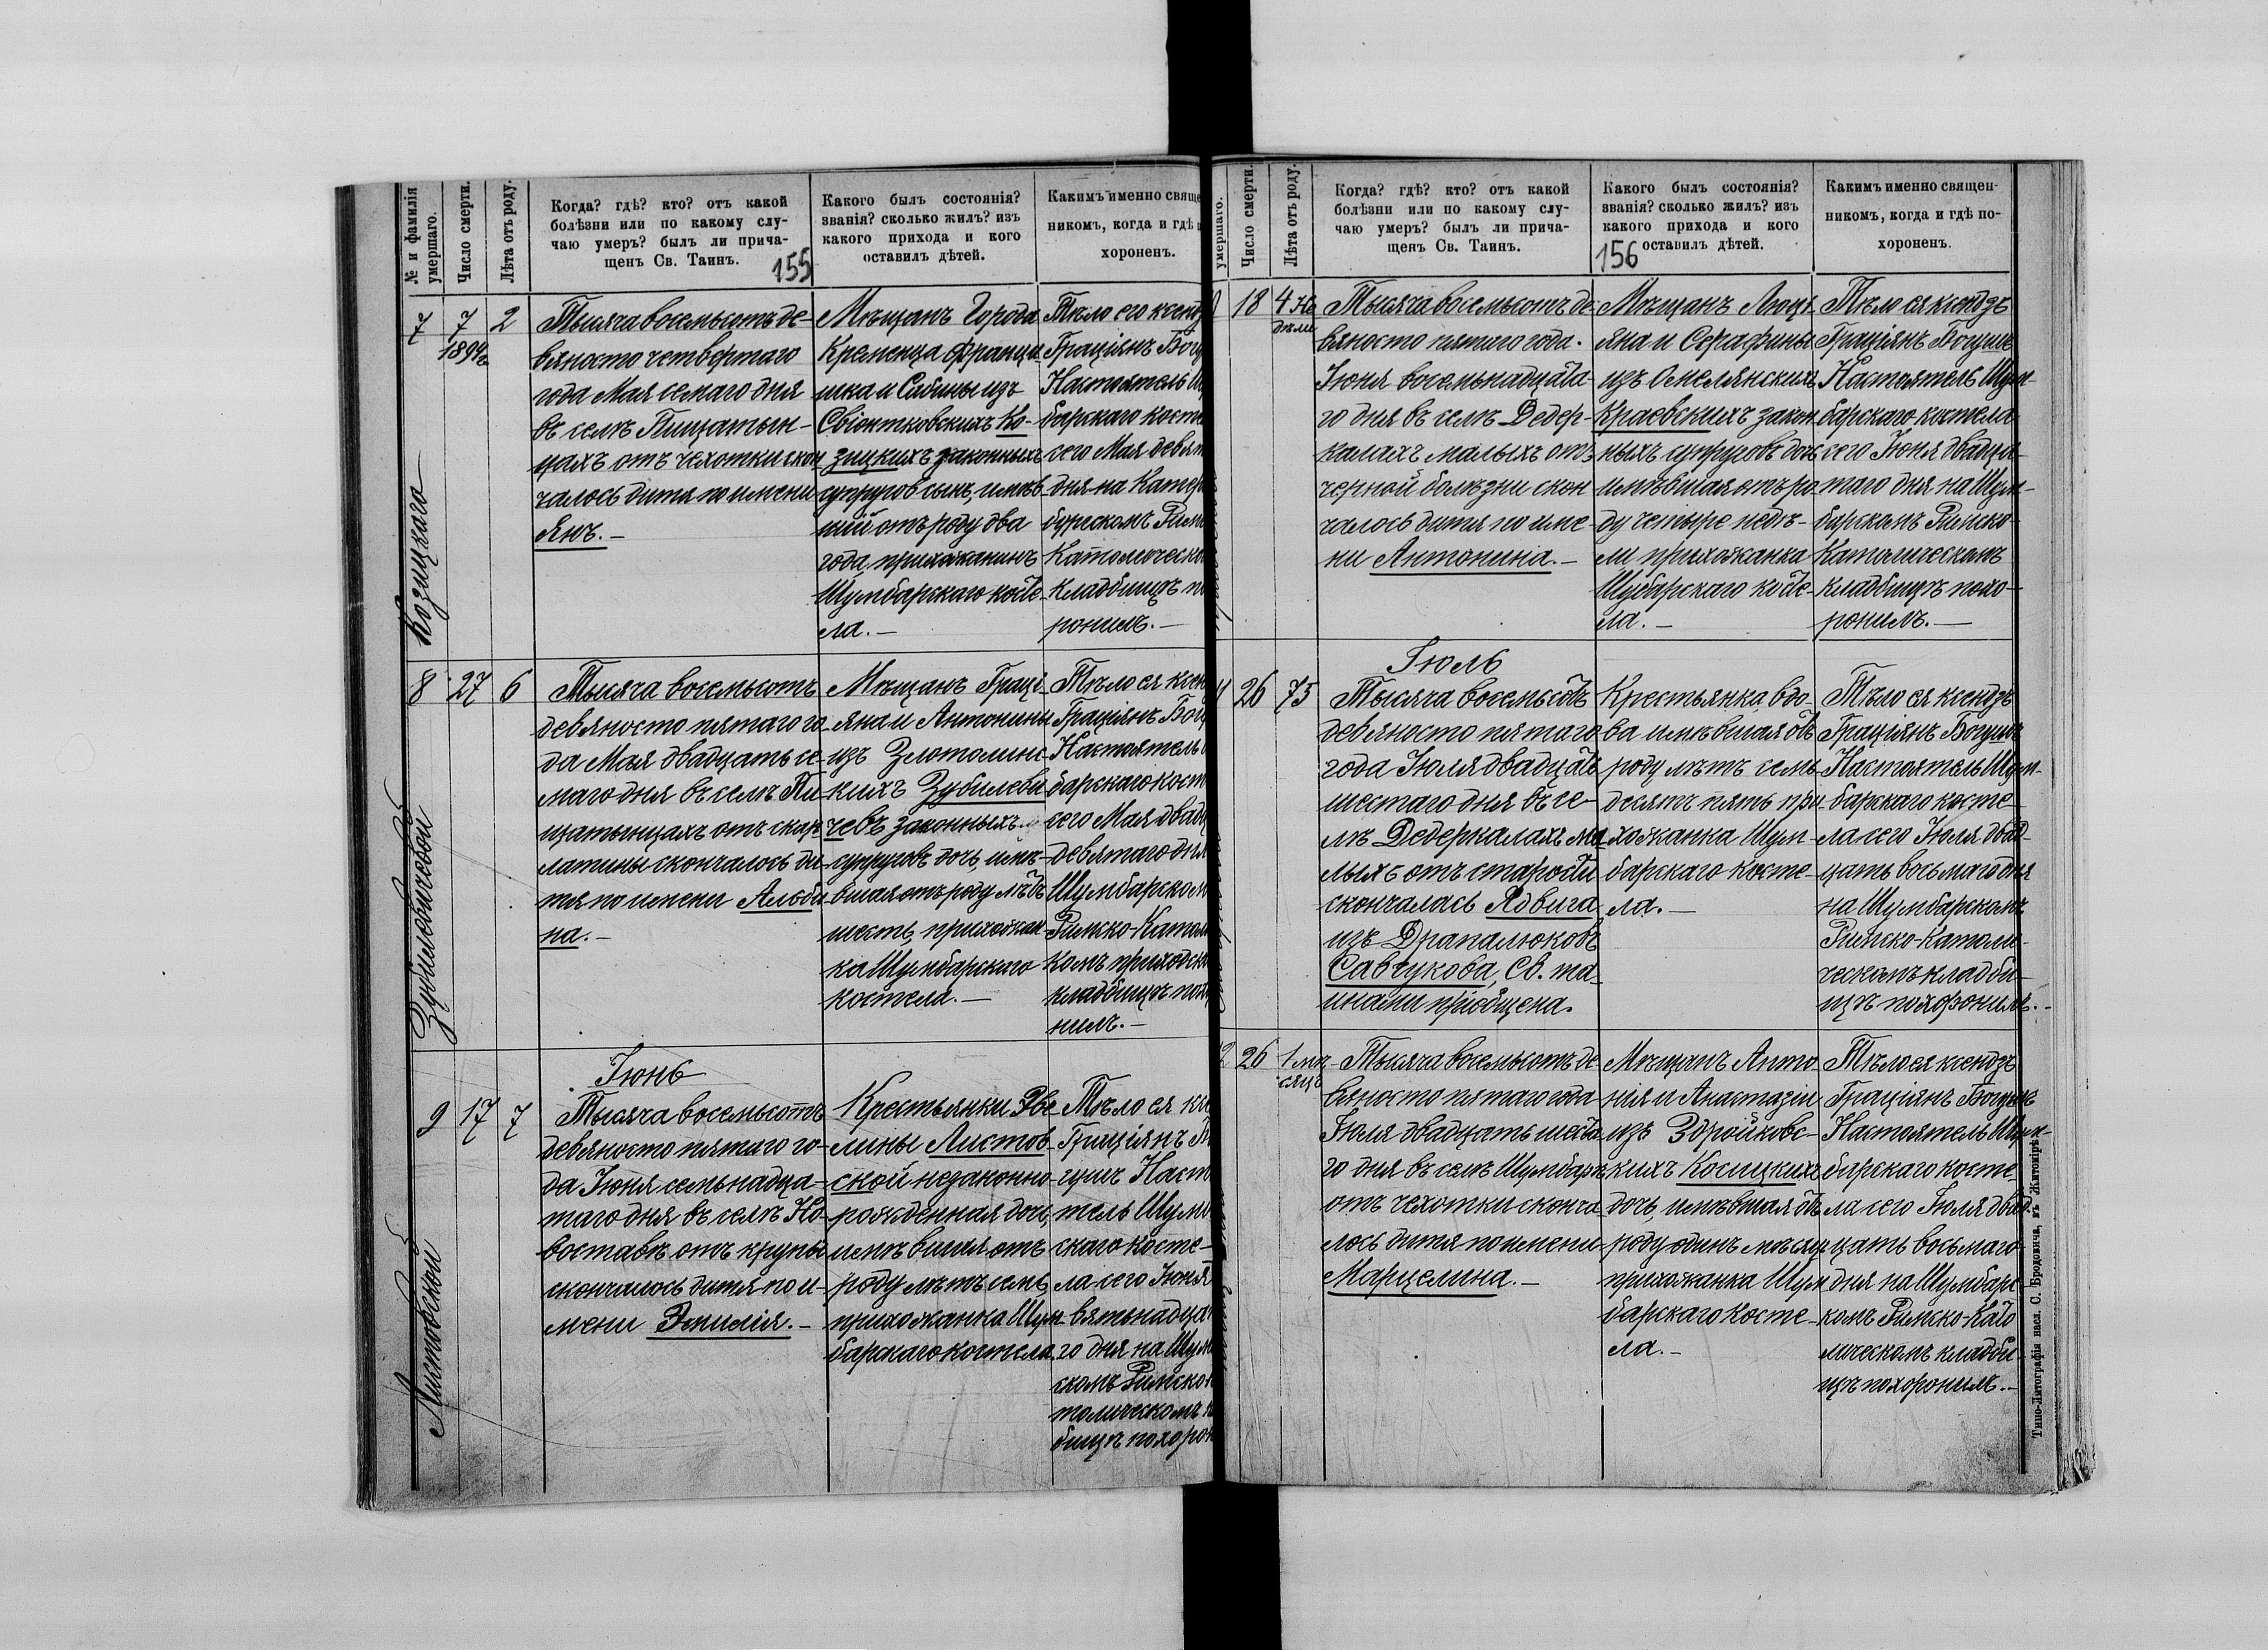 № и фамилія
умершаго.
Число смерти.
Лѣта отъ роду.
Когда? гдѣ? кто? отъ какой
болѣзни или по какому слу-
чаю умеръ? былъ ли прича-
щенъ Св. Таинъ.
155
Какого былъ состоянія?
званія? сколько жилъ? изъ
какого прихода и кого
оставилъ дѣтей.
Какимъ именно свяще
никомъ, когда и гдѣ п
хороненъ.
7
Козицкаго
7
1894г
2
Тысяча восемьсотъ де-
вяносто четвертаго
года Мая семаго дня
въ селѣ Пищатын-
цахъ отъ чехотки скон
чалось дитя по имени
Янъ.-
Мѣщанъ Города
Кременца Франци-
шка и Сабины изъ
Свіонтковскихъ Ко-
зицкихъ законныхъ
супруговъ сынъ, имѣв
ший отъ роду два
года, прихожанинъ
Шумбарскаго косте-
ла.-
Тѣло его ксенд
Граціянъ Богу
Настоятель Ш
барскаго косте
сего Мая девят
дня на Катер
бургскомъ Римс
Католическом
кладбищѣ по
ронилъ.-
8
Зубилевичевой
27
6
Тысяча восемьсотъ
девяносто пятаго го-
да Мая двадцать се-
маго дня въ селѣ Пи
щатынцахъ отъ скар
латины скончалось ди-
тя по имени Альби
на.-
Мѣщанъ Граці-
яна и Антонины
изъ Злотолинс-
кихъ Зубилеви
чевъ законныхъ
супруговъ дочь, имѣ-
вшая отъ роду лѣтъ
шесть, прихожан-
ка Шумбарскаго
костела.-
Тѣло ея ксен
Граціянъ Богу
Настоятель
барскаго кост
сего Мая двадц
девятаго дня
Шумбарском
Римско-Катол
комъ приходск
кладбищѣ похо
нилъ.-
Іюнь
9
Листовской
17
7
Тысяча восемьсотъ
девяносто пятаго го-
да Іюня семьнадца-
таго дня въ селѣ Но-
воставѣ отъ крупы
скончалось дитя по и-
мени Эмилія.-
Крестьянки Эве
лины Листов-
ской незаконно-
рожденная дочь,
имѣвшая отъ
роду лѣтъ семь,
прихожанка Шум-
барскаго костела
Тѣло ея кс
Граціянъ Бо
гушъ Наст
тель Шумб
скаго косте-
ла сего Іюня
вятьнадца
го дня на Шум
скомъ Римско
толическомъ к
бищѣ похорон
умершаго.
Число смерти.
Лѣта отъ роду.
Когда? гдѣ? кто? отъ какой
болѣзни или по какому слу-
чаю умеръ? былъ ли прича-
щенъ Св. Таинъ.
Какого былъ состоянія?
званія? сколько жилъ? изъ
какого прихода и кого
оставилъ дѣтей.
156
Какимъ именно священ-
никомъ, когда и гдѣ по-
хороненъ.
18
4 не
дѣли
Тысяча восемьсотъ де-
вяносто пятаго года.
Іюня восемьнадцата-
го дня въ селѣ Дедер-
калахъ малыхъ отъ
черной болѣзни скон
чалось дитя по име-
ни Антонина.-
Мѣщанъ Люці-
яна и Серафины
изъ Омелянскихъ
Краевскихъ закон
ныхъ супруговъ дочь
имѣвшая отъ ро-
ду четыре недѣ-
ли прихожанка
Шубарскаго косте-
ла.-
Тѣло ея ксендзъ
Граціянъ Богушъ
Настоятель Шум-
барскаго костела
сего Іюня двадца-
таго дня на Шум-
барскомъ Римско-
Католическомъ
кладбищѣ похо-
ронилъ.-
Іюль
26
75
Тысяча восемьсотъ
девяносто пятаго
года Іюля двадцать
шестаго дня въ се-
лѣ Дедеркалахъ ма-
лыхъ отъ старости
скончалась Ядвига
изъ Драпалюковъ
Савчукова, Св. та-
инами приобщена.
Крестьянка, вдо-
ва имѣвшая отъ
роду лѣтъ семь-
десятъ пять при
хожанка Шум-
барскаго косте-
ла.-
Тѣло ея ксендзъ
Граціянъ Богушъ
Настоятель Шум-
барскаго косте-
ла сего Іюля двад-
цать восьмаго дня
на Шумбарскомъ
Римско-Католи-
ческомъ кладби-
щѣ похоронилъ.-
2
26
1 мѣ
сяцъ
Тысяча восемьсотъ де-
вяносто пятаго года
Іюля двадцать шеста
го дня въ селѣ Шумбарѣ
отъ чехотки сконча
лось дитя по имени
Марцелина.-
Мѣщанъ Анто-
нія и Анастазіи
изъ Здройковс-
кихъ Косицкихъ
дочь, имѣвшая отъ
роду одинъ мѣсяцъ
прихожанка Шум
барскаго косте-
ла.-
Тѣло ея ксендзъ
Граціянъ Богушъ
Настоятель Шум-
барскаго косте-
ла сего Іюля двад-
цать восьмаго
дня на Шумбарс-
комъ Римско-Като
лическомъ кладби-
щѣ похоронилъ.-
Типо-Литографія насл. С. Бродовича, въ Житомірѣ.